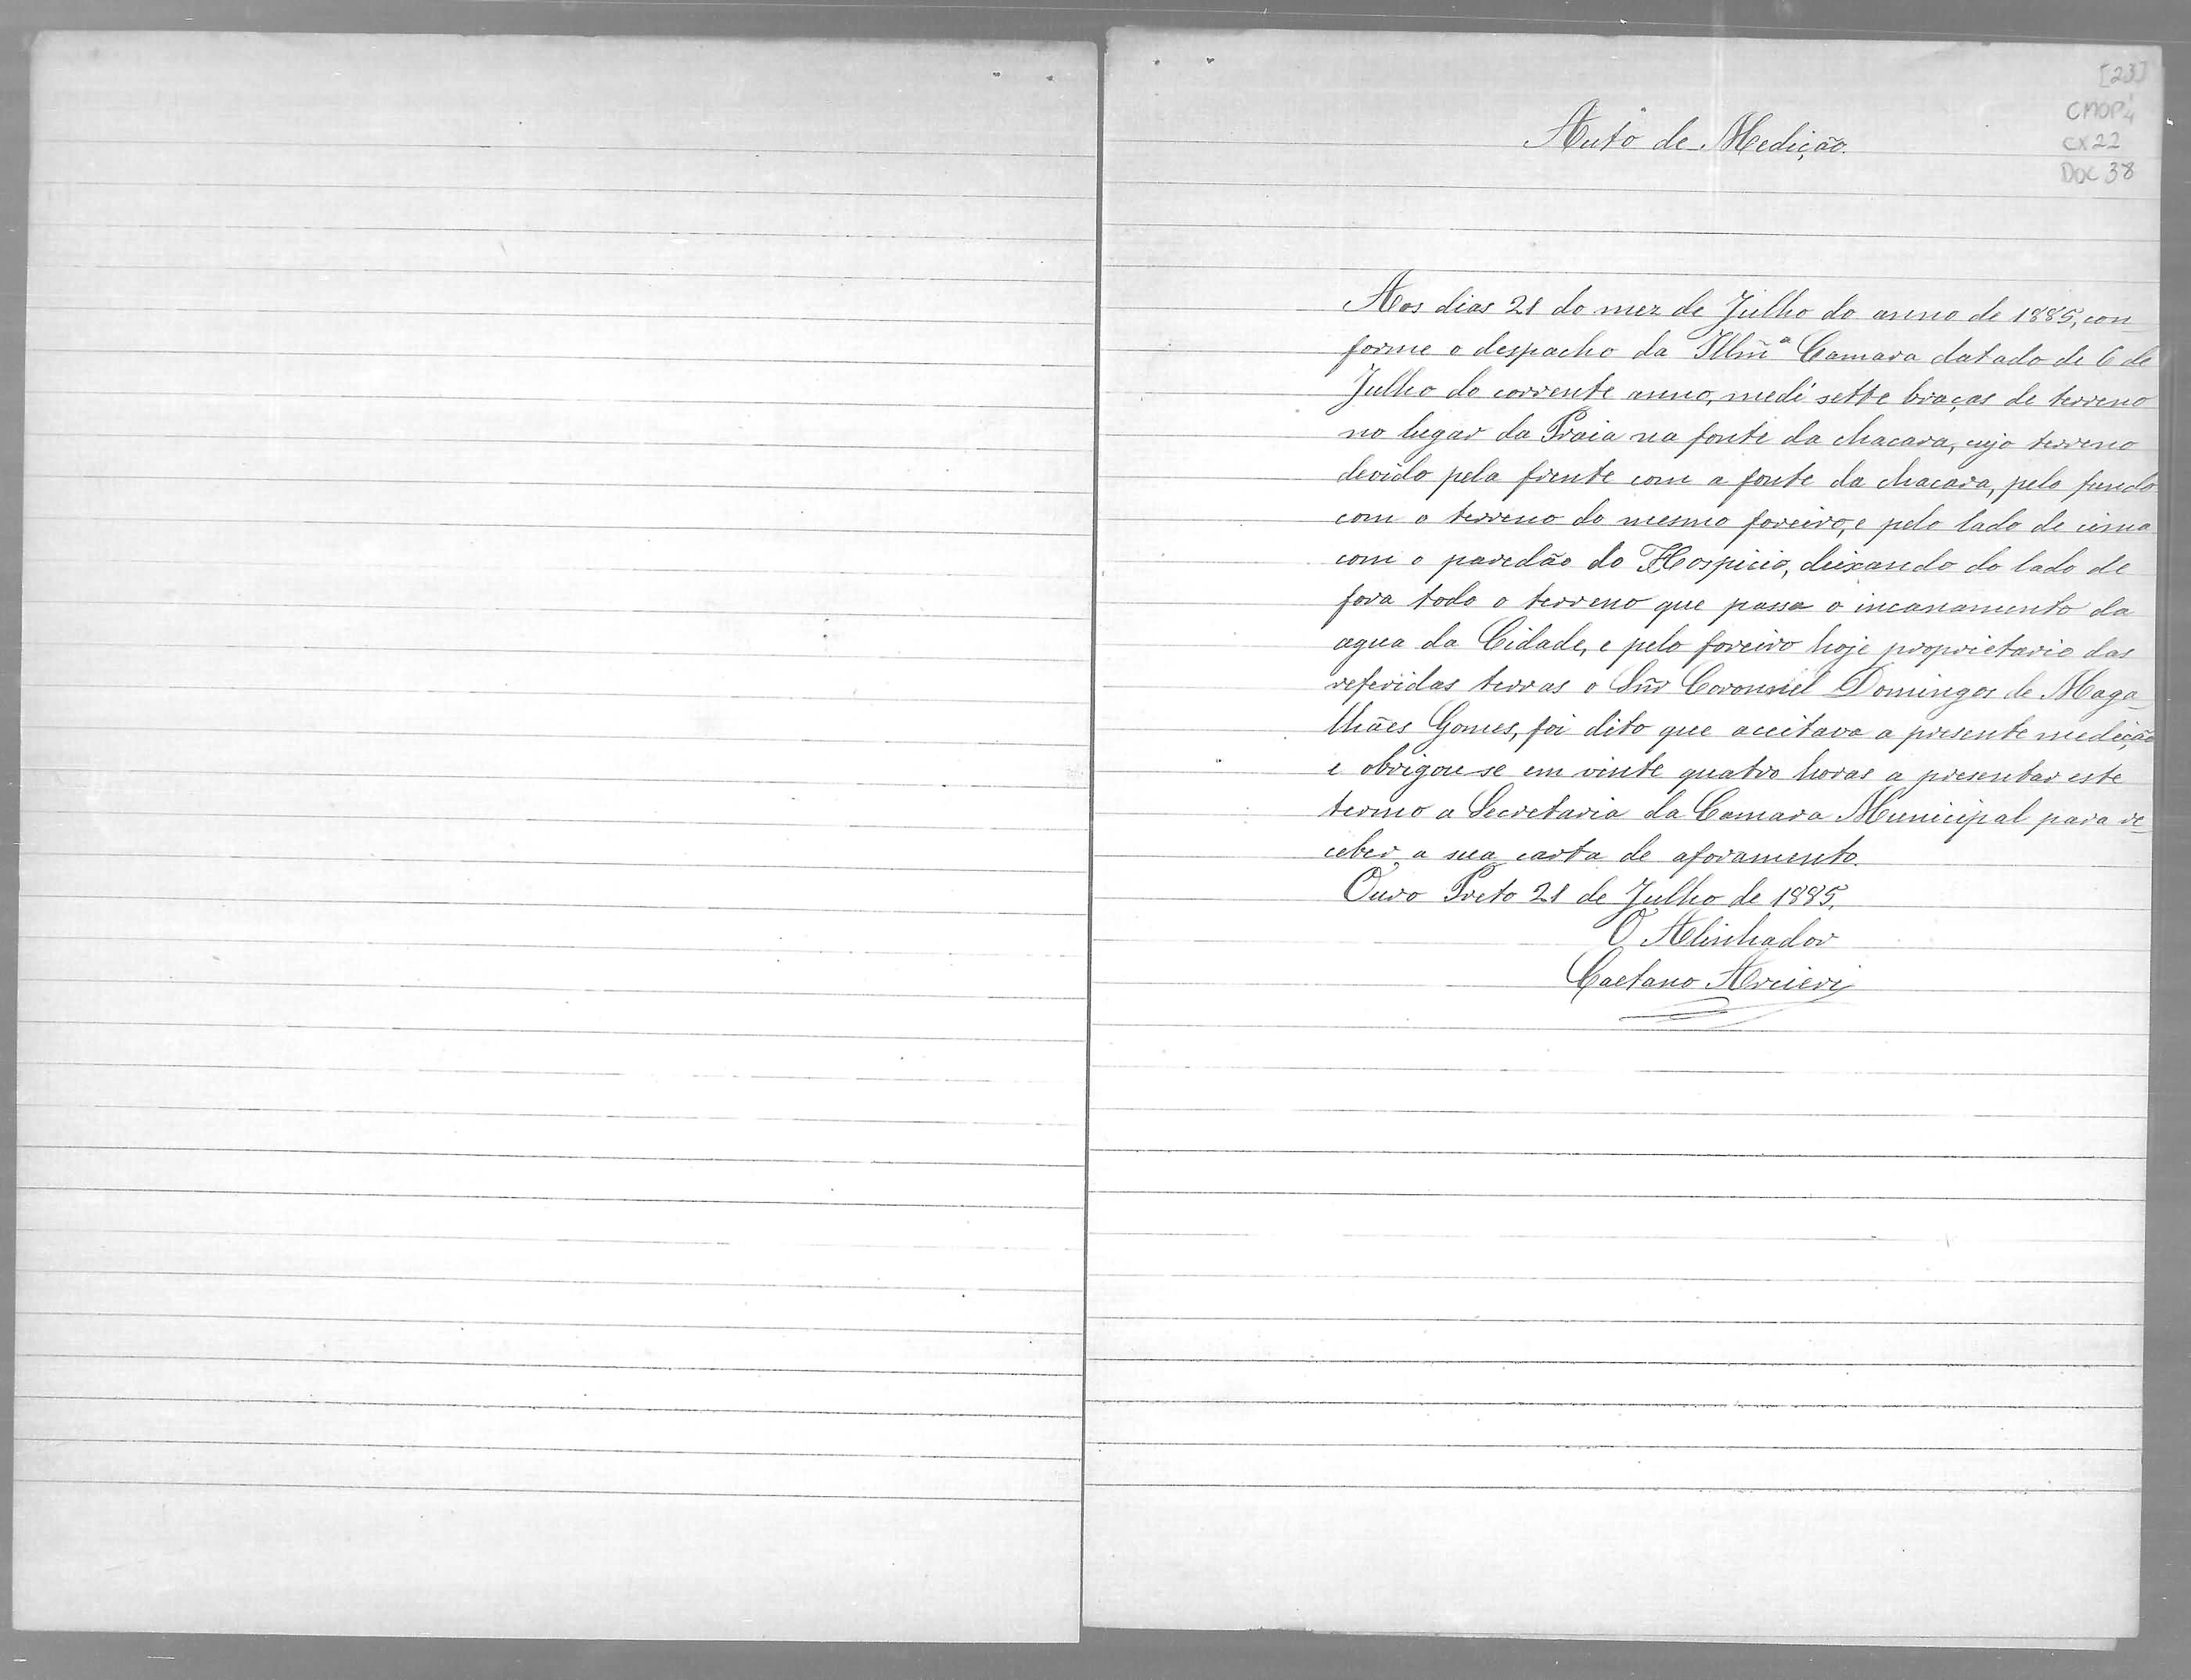 [23]
CMOP
CX 22
DOC 38
Auto de Medição.
Aos dias 21 do mez de Julho do anno de 1885, con
forme o despacho da Illm̃ª Camara datado de 6 de
Julho do corrente anno, medi sette braças de terreno
no lugar da Praia na fonte da chacara, cujo terreno
devido pela frente com a fonte da chacara, pelo fundo
com o terreno do mesmo foreiro, e pelo lado de cima
com o paredão do Hospicio, deixando do lado de
fora todo o terreno que passa o incanamento da
agua da Cidade, e pelo foreiro hoje proprietario das
referidas terras o Sñr Coronel Domingos de Maga-
lhães Gomes, foi dito que aceitava a presente medição
e obrigou-se em vinte quatro horas a presentar este
termo a Secretaria da Camara Municipal para re-
ceber a sua carta de aforamento.
Ouro Preto 21 de Julho de 1885.
O Alinhador
Caetano Arcieri